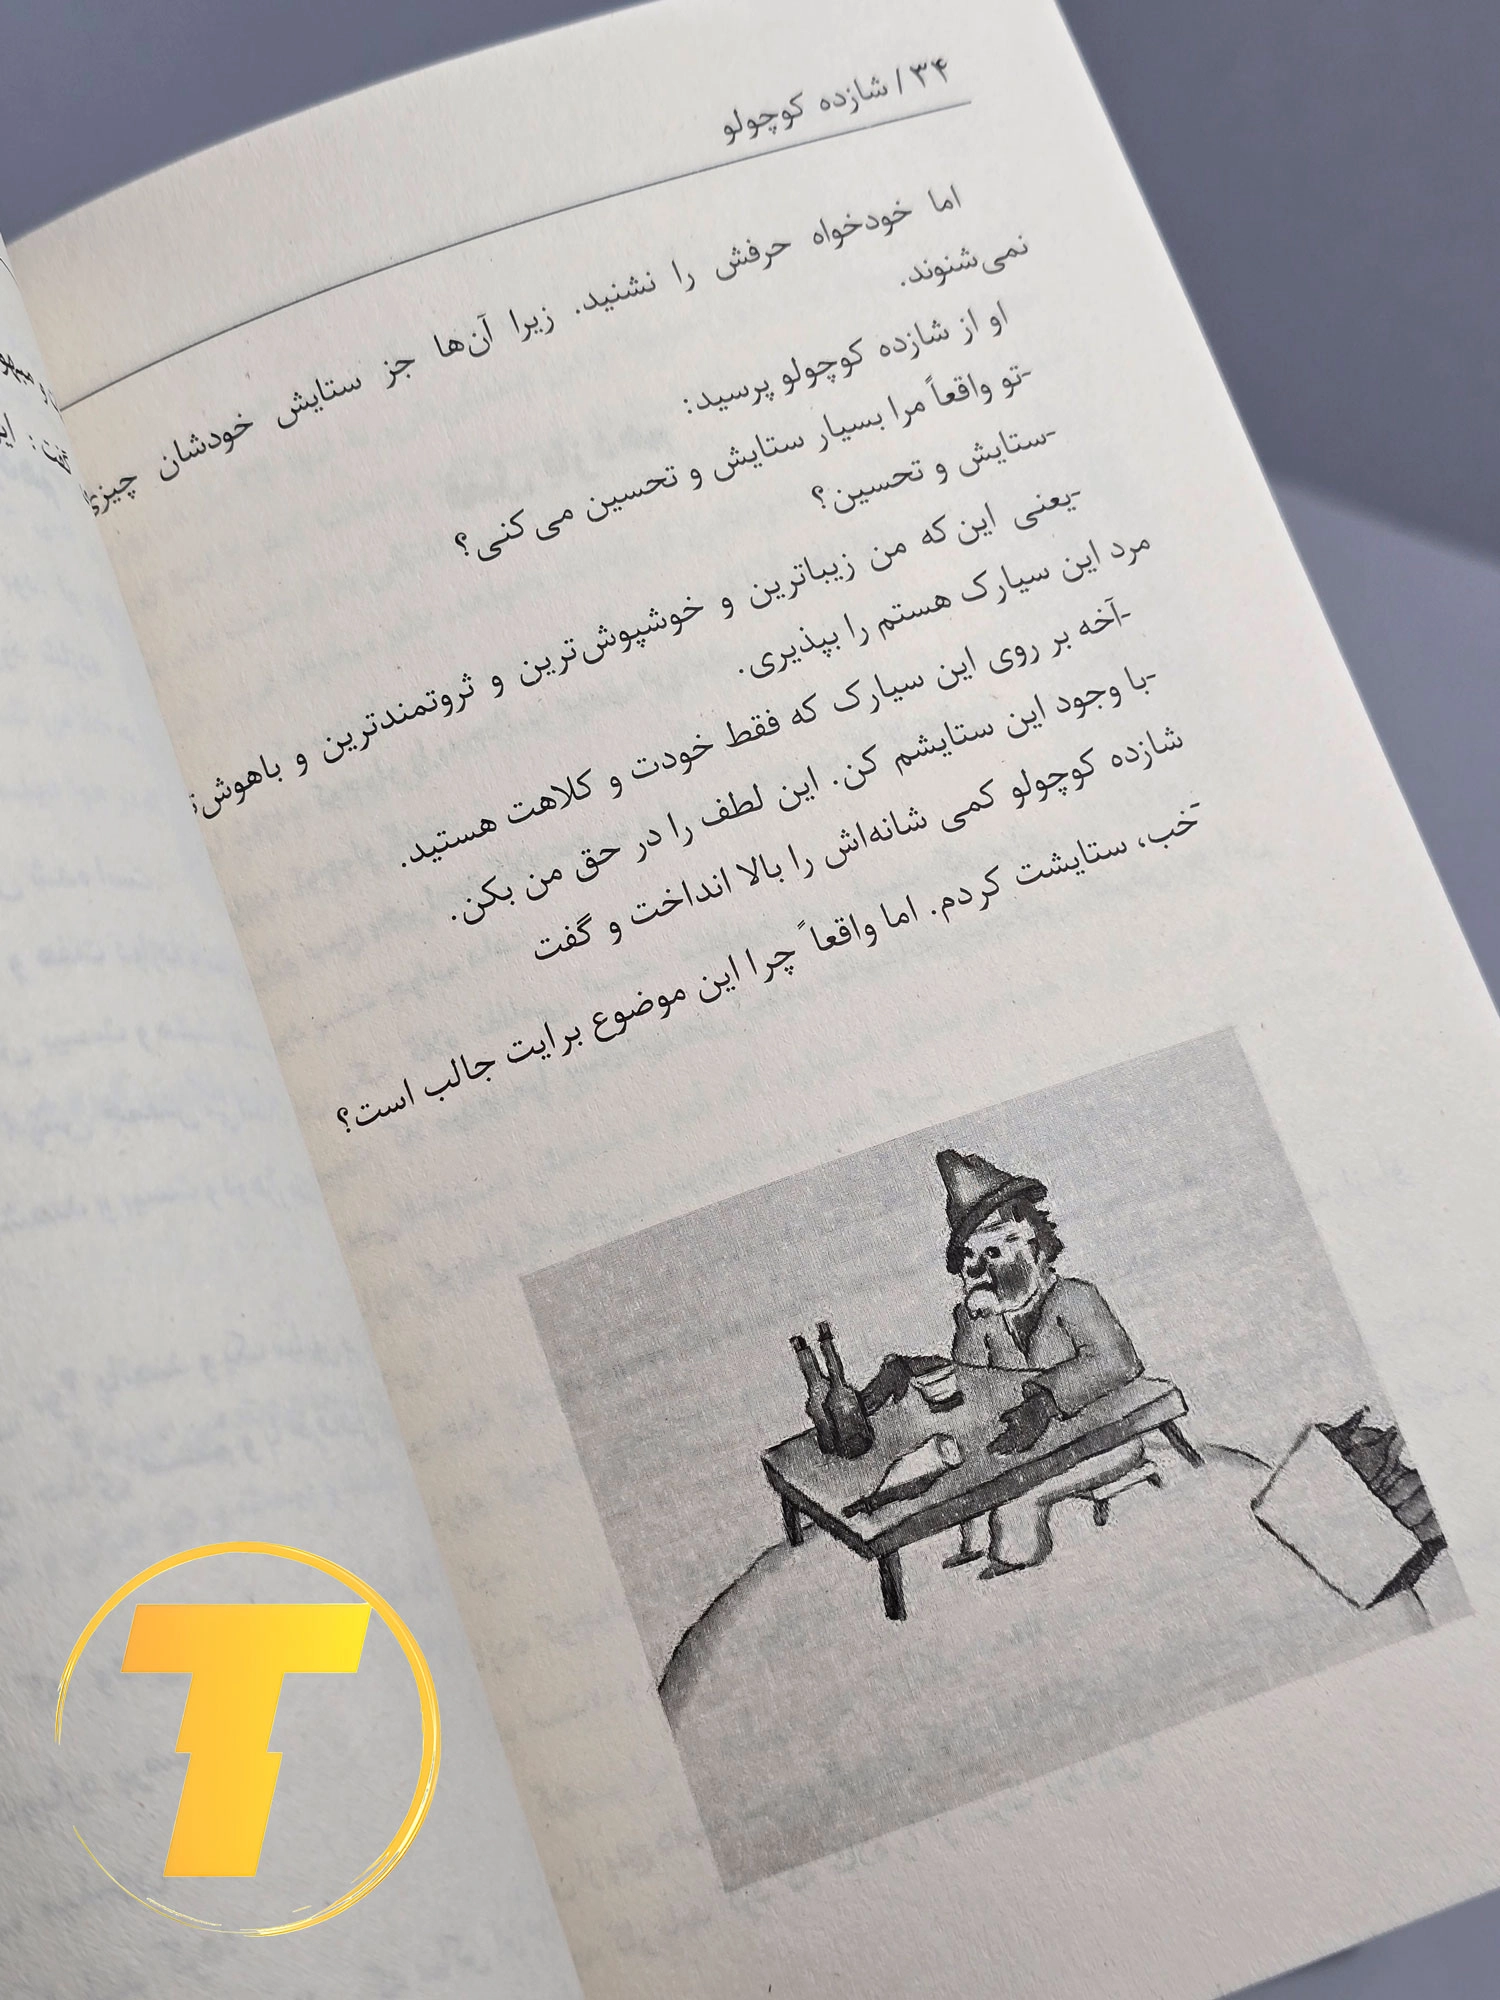 ۳۴ / شازده کوچولو
اما خودخواه حرفش را نشنید. زیرا آن‌ها جز ستایش خودشان
نمی‌شنوند.
او از شازده کوچولو پرسید:
-تو واقعاً مرا بسیار ستایش و تحسین می‌کنی؟
-ستایش و تحسین؟
-یعنی این‌که من زیباترین و خوشپوش‌ترین و ثروتمندترین و
مرد این سیارک هستم را بپذیری.
-آخه بر روی این سیارک که فقط خودت و کلاهت هستید.
-با وجود این ستایشم کن. این لطف را در حق من بکن.
شازده کوچولو کمی شانه‌اش را بالا انداخت و گفت
-خب، ستایشت کردم. اما واقعاً چرا این موضوع برایت جالب است؟
T